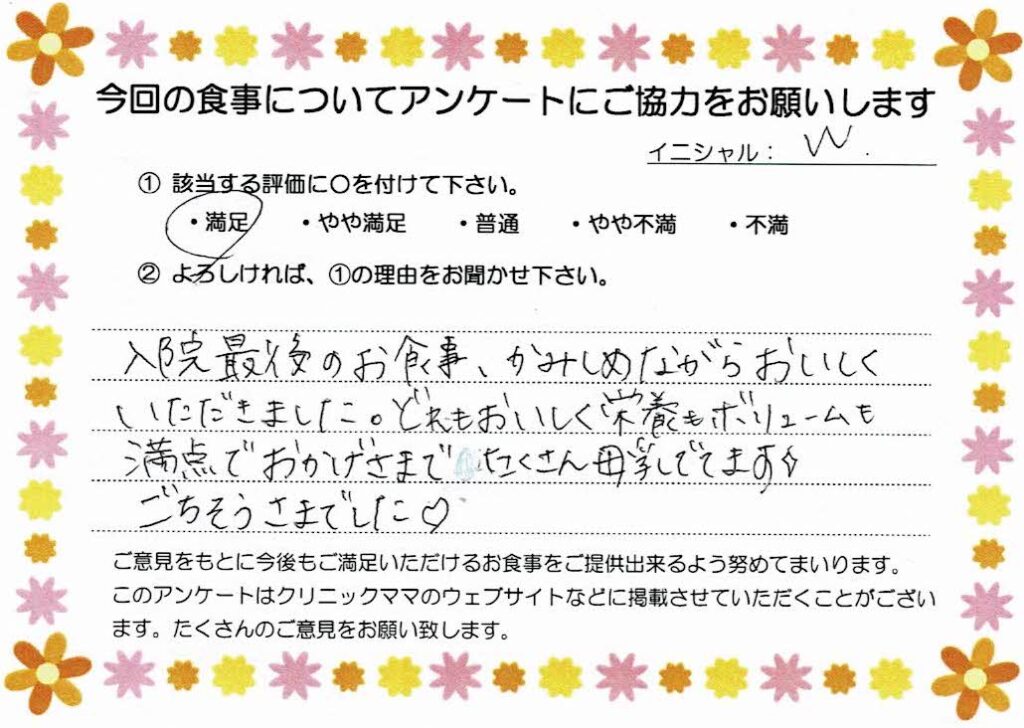 今回の食事についてアンケートにご協力をお願いします
イニシャル： W.
① 該当する評価に〇を付けて下さい。
・満足 ・やや満足 ・普通 ・やや不満 ・不満
② よろしければ、①の理由をお聞かせ下さい。
入院最後のお食事、かみしめながらおいしく
いただきました。どれもおいしく栄養もボリュームも
満点でおかげさまでたくさん母乳でてます♪
ごちそうさまでした♡
ご意見をもとに今後もご満足いただけるお食事をご提供出来るよう努めてまいります。
このアンケートはクリニックママのウェブサイトなどに掲載させていただくことがござい
ます。たくさんのご意見をお願い致します。